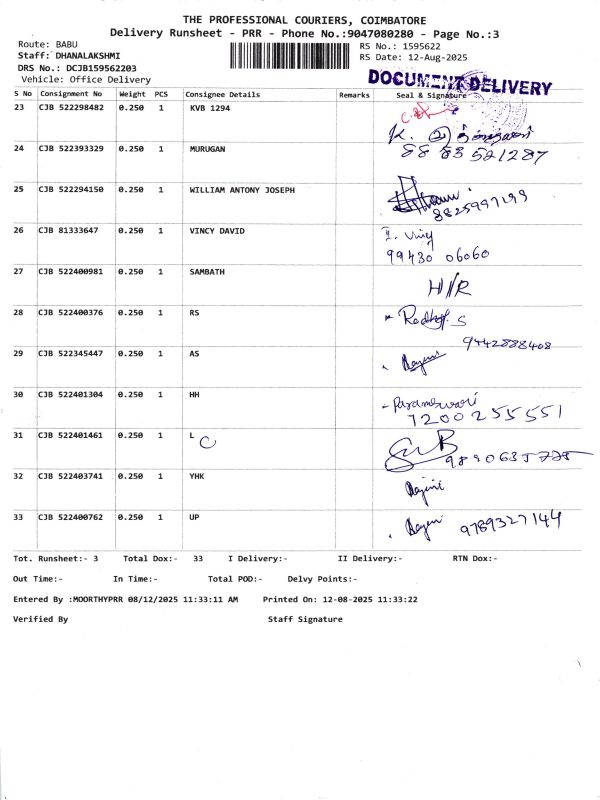 THE PROFESSIONAL COURIERS, COIMBATORE
Delivery Runsheet - PRR - Phone No.:9047080280 - Page No.:3
Route: BABU
RS No.: 1595622
Staff: DHANALAKSHMI
RS Date: 12-Aug-2025
DRS No.: DCJB159562203
Vehicle: Office Delivery
DOCUMENT DELIVERY
S No Consignment No Weight PCS Consignee Details Remarks Seal & Signature
23 CJB 522298482 0.250 1 KVB 1294
K.
24 CJB 522393329 0.250 1 MURUGAN 88 83 521287
25 CJB 522294150 0.250 1 WILLIAM ANTONY JOSEPH
8825997199
26 CJB 81333647 0.250 1 VINCY DAVID I. Vincy
99430 06060
27 CJB 522400981 0.250 1 SAMBATH H/R
28 CJB 522400376 0.250 1 RS
9442888408
29 CJB 522345447 0.250 1 AS
30 CJB 522401304 0.250 1 HH - Parameswari
7200255551
31 CJB 522401461 0.250 1 L C
32 CJB 522403741 0.250 1 YHK
33 CJB 522400762 0.250 1 UP 9789327144
Tot. Runsheet:- 3 Total Dox:- 33 I Delivery:- II Delivery:- RTN Dox:-
Out Time:- In Time:- Total POD:- Delvy Points:-
Entered By :MOORTHYPRR 08/12/2025 11:33:11 AM Printed On: 12-08-2025 11:33:22
Verified By Staff Signature